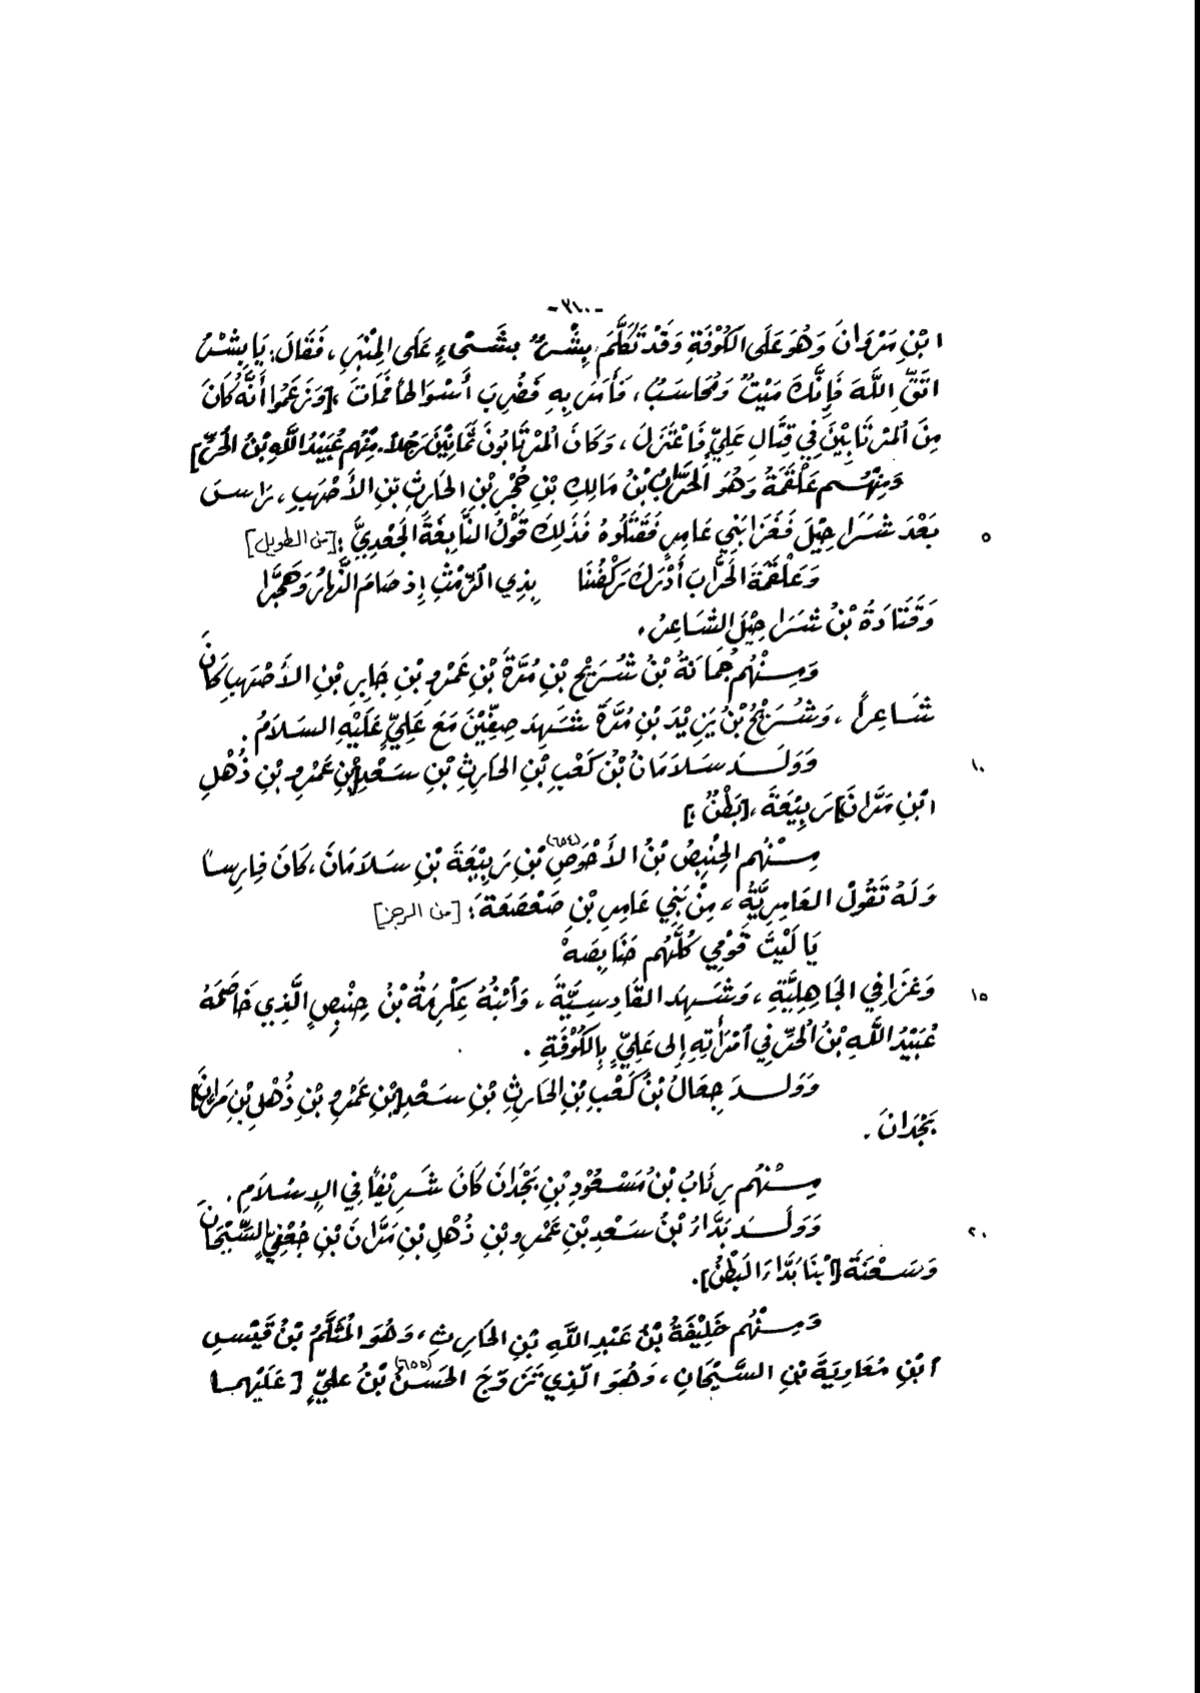 -٣١٠-
ابْنِ مَرْوَانَ وَهُوَ عَلَى الكُوْفَةِ وَقَدْ تَكَلَّمَ بِشْرٌ بِشَيْءٍ عَلَى المِنْبَرِ، فَقَالَ: يَا بِشْرُ
اتَّقِ اللَّهَ فَإِنَّكَ مَيِّتٌ وَمُحَاسَبٌ، فَأَمَرَ بِهِ فَضُرِبَ أَسْوَاطاً فَمَاتَ، [وَزَعَمُوا أَنَّهُ كَانَ
مِنَ المُرْتَابِيْنَ فِي قِتَالِ عَلِيٍّ فَاعْتَزَلَ، وَكَانَ المُرْتَابُونَ ثَمَانِيْنَ رَجُلاً. مِنْهُم عُبَيْدُ اللَّهِ بْنُ الحُرِّ]
وَمِنْهُم عَلْقَمَةُ وَهُوَ الحَرَّابُ بْنُ مَالِكِ بْنِ حُجْرِ بْنِ الحَارِثِ بْنِ الأَصْهَبِ، رَأَسَ
بَعْدَ شَرَاحِيْلَ فَغَزَا بَنِي عَامِرٍ فَقَتَلُوهُ فَذَلِكَ قَوْلُ النَّابِغَةَ الجَعْدِيِّ: [من الطويل] ٥
وَعَلْقَمَةَ الحَرَّابَ أَدْرَكَ رَكْضُنَا بِذِي الرِّمْثِ إِذ صَامَ النَّهَارُ وَهَجَّرَا
وَقَتَادَةُ بْنُ شَرَاحِيْلَ الشَّاعِرُ.
وَمِنْهُم جُمَانَةُ بْنُ شُرَيْحِ بْنِ مُرَّةَ بْنِ عَمْرِو بْنِ جَابِرِ بْنِ الأَصْهَبِ كَانَ
شَاعِراً، وَشُرَيْحُ بْنُ يَزِيْدَ بْنِ مُرَّةَ شَهِدَ صِفِّيْنَ مَعَ عَلِيٍّ عَلَيْهِ السَّلاَمُ.
وَوَلَدَ سَلاَمَانُ بْنُ كَعْبِ بْنِ الحَارِثِ بْنِ سَعْدِ [بْنِ عَمْرِو بْنِ ذُهْلِ ١٠
ابْنِ مَرَّانَ] رَبِيْعَةَ، [بَطْنٌ.]
مِنْهُم الحِنْبِصُ بْنُ الأَحْوَصِ (٦٥٤) بْنِ رَبِيْعَةَ بْنِ سَلاَمَانَ، كَانَ فَارِساً
وَلَهُ تَقُولُ العَامِرِيَّةُ، مِنْ بَنِي عَامِرِ بْنِ صَعْصَعَةَ: [من الرجز]
يَا لَيْتَ قَوْمِي كُلَّهُم حَنَابِصَهْ
وَغَزَا فِي الجَاهِلِيَّةِ، وَشَهِدَ القَادِسِيَّةَ، وَابْنُهُ عِكْرِمَةُ بْنُ حِنْبِصٍ الَّذِي خَاصَمَهُ ١٥
عُبَيْدُ اللَّهِ بْنُ الحُرِّ فِي امْرَأَتِهِ إِلَى عَلِيٍّ بِالكُوْفَةِ.
وَوَلَدَ جِعَالُ بْنُ كَعْبِ بْنِ الحَارِثِ بْنِ سَعْدِ [بْنِ عَمْرِو بْنِ ذُهْلِ بْنِ مَرَّانَ]
بَجْدَانَ.
مِنْهُم رِئَابُ بْنُ مَسْعُوْدِ بْنِ بَجْدَانَ كَانَ شَرِيْفاً فِي الإِسْلاَمِ.
وَوَلَدَ بَدَّاءُ بْنُ سَعْدِ بْنِ عَمْرِو بْنِ ذُهْلِ بْنِ مَرَّانَ بْنِ جُعْفِيٍّ السَّيْحَانَ ٢٠
وَسَعْنَةَ [ابْنَا بَدَّاءَ البَطْنُ].
وَمِنْهُم خَلِيْفَةُ بْنُ عَبْدِ اللَّهِ بْنِ الحَارِثِ، وَهُوَ المُثَلَّمُ بْنُ قَيْسِ
ابْنِ مُعَاوِيَةَ بْنِ السَّيْحَانِ، وَهُوَ الَّذِي تَزَوَّجَ الحَسَنُ (٦٥٥) بْنُ عَلِيٍّ [عَلَيْهِمَا]